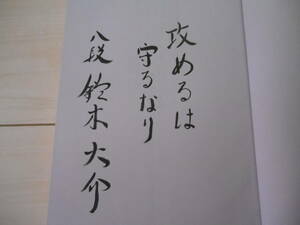 攻めるは
守るなり
八段 鈴木大介